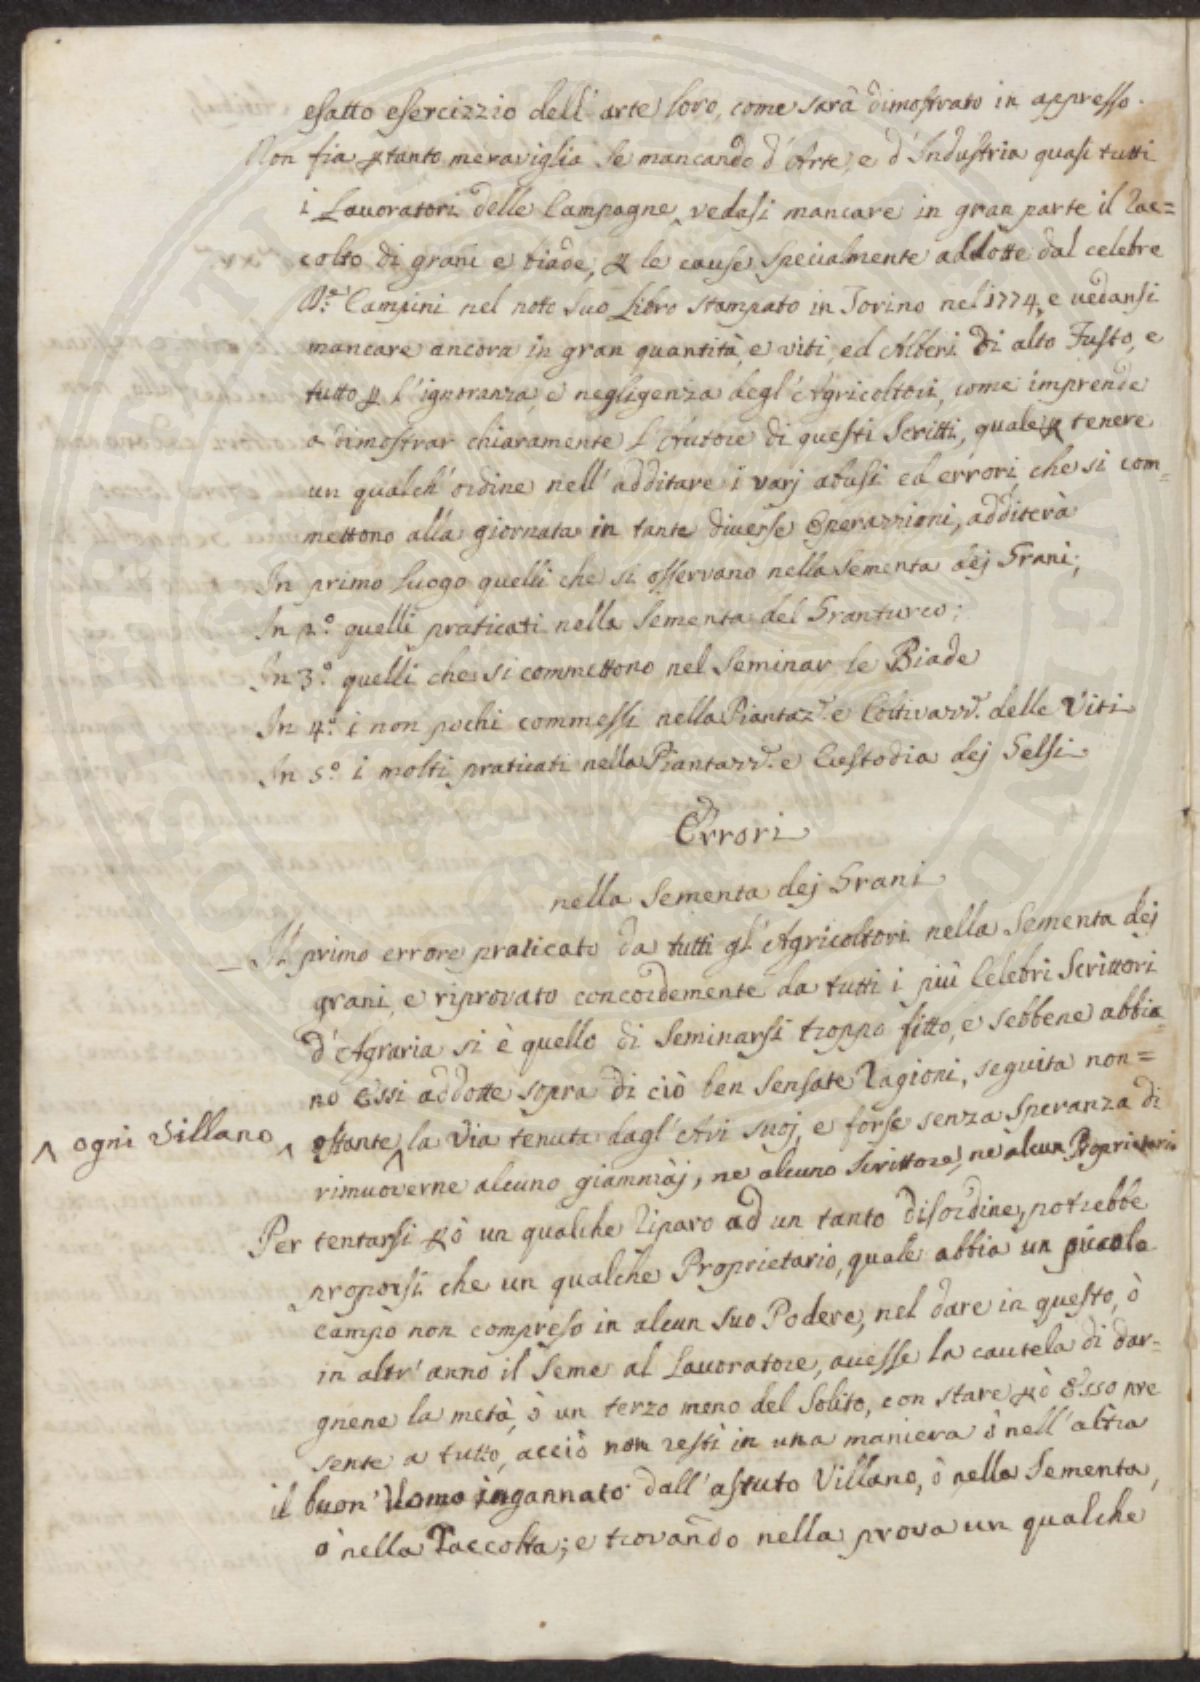 esatto esercizzio dell'arte loro, come sarà dimostrato in appresso.
Non fia ꝑtanto meraviglia se mancando d'Arte, e d'Industria quasi tutti
i Lavoratori delle Campagne, vedasi mancare in gran parte il Rac=
colto di grani e biade, ꝑ le cause specialmente addotte dal celebre
Campini nel noto suo Libro stampato in Torino nel 1774, e vedansi
mancare ancora in gran quantità, e viti, ed Alberi di alto Fusto, e
tutto ꝑ l'ignoranza, e negligenza degl'Agricoltori, come imprende
a dimostrar chiaramente l'Autore di questi Scritti, quale ꝑ tenere
un qualch'ordine nell'additare i varj abusi ed errori, che si com=
mettono alla giornata in tante diverse Operazzioni, additerà
In primo luogo quelli che si osservano nella Sementa dej Grani;
In 2.º quelli praticati nella Sementa del Granturco;
In 3.º quelli che si commettono nel Seminar le Biade
In 4.º i non pochi commessi nella Piantaz.e e Coltivazz.e delle Viti
In 5.º i molti praticati nella Piantazz.e e Custodia dej Gelsi
Errori
nella Sementa dej Grani
Il primo errore praticato da tutti gl'Agricoltori nella Sementa dej
grani, e riprovato concordemente da tutti i più Celebri Scrittori
d'Agraria si è quello di Seminarsi troppo fitto, e sebbene abbia=
no Essi addotte sopra di ciò ben sensate Ragioni, seguita non=
^ ogni Villano ^ ostante la Via tenuta dagl'Avi suoj, e forse senza Speranza di
rimuoverne alcuno giammàj, ne alcuno Scrittore, ne alcun Proprietario
Per tentarsi ꝑò un qualche Riparo ad un tanto disordine, potrebbe
proporsi che un qualche Proprietario, quale abbia un piccolo
campo non compreso in alcun suo Podere, nel dare in questo, ò
in altr'anno il Seme al Lavoratore, avesse la cautela di dar=
gnene la metà, ò un terzo meno del Solito, con stare ꝑò Esso pre
sente a tutto, acciò non resti in una maniera ò nell'altra
il buon'Uomo ingannato dall'astuto Villano, ò nella Sementa,
ò nella Raccolta; e trovando nella prova un qualche